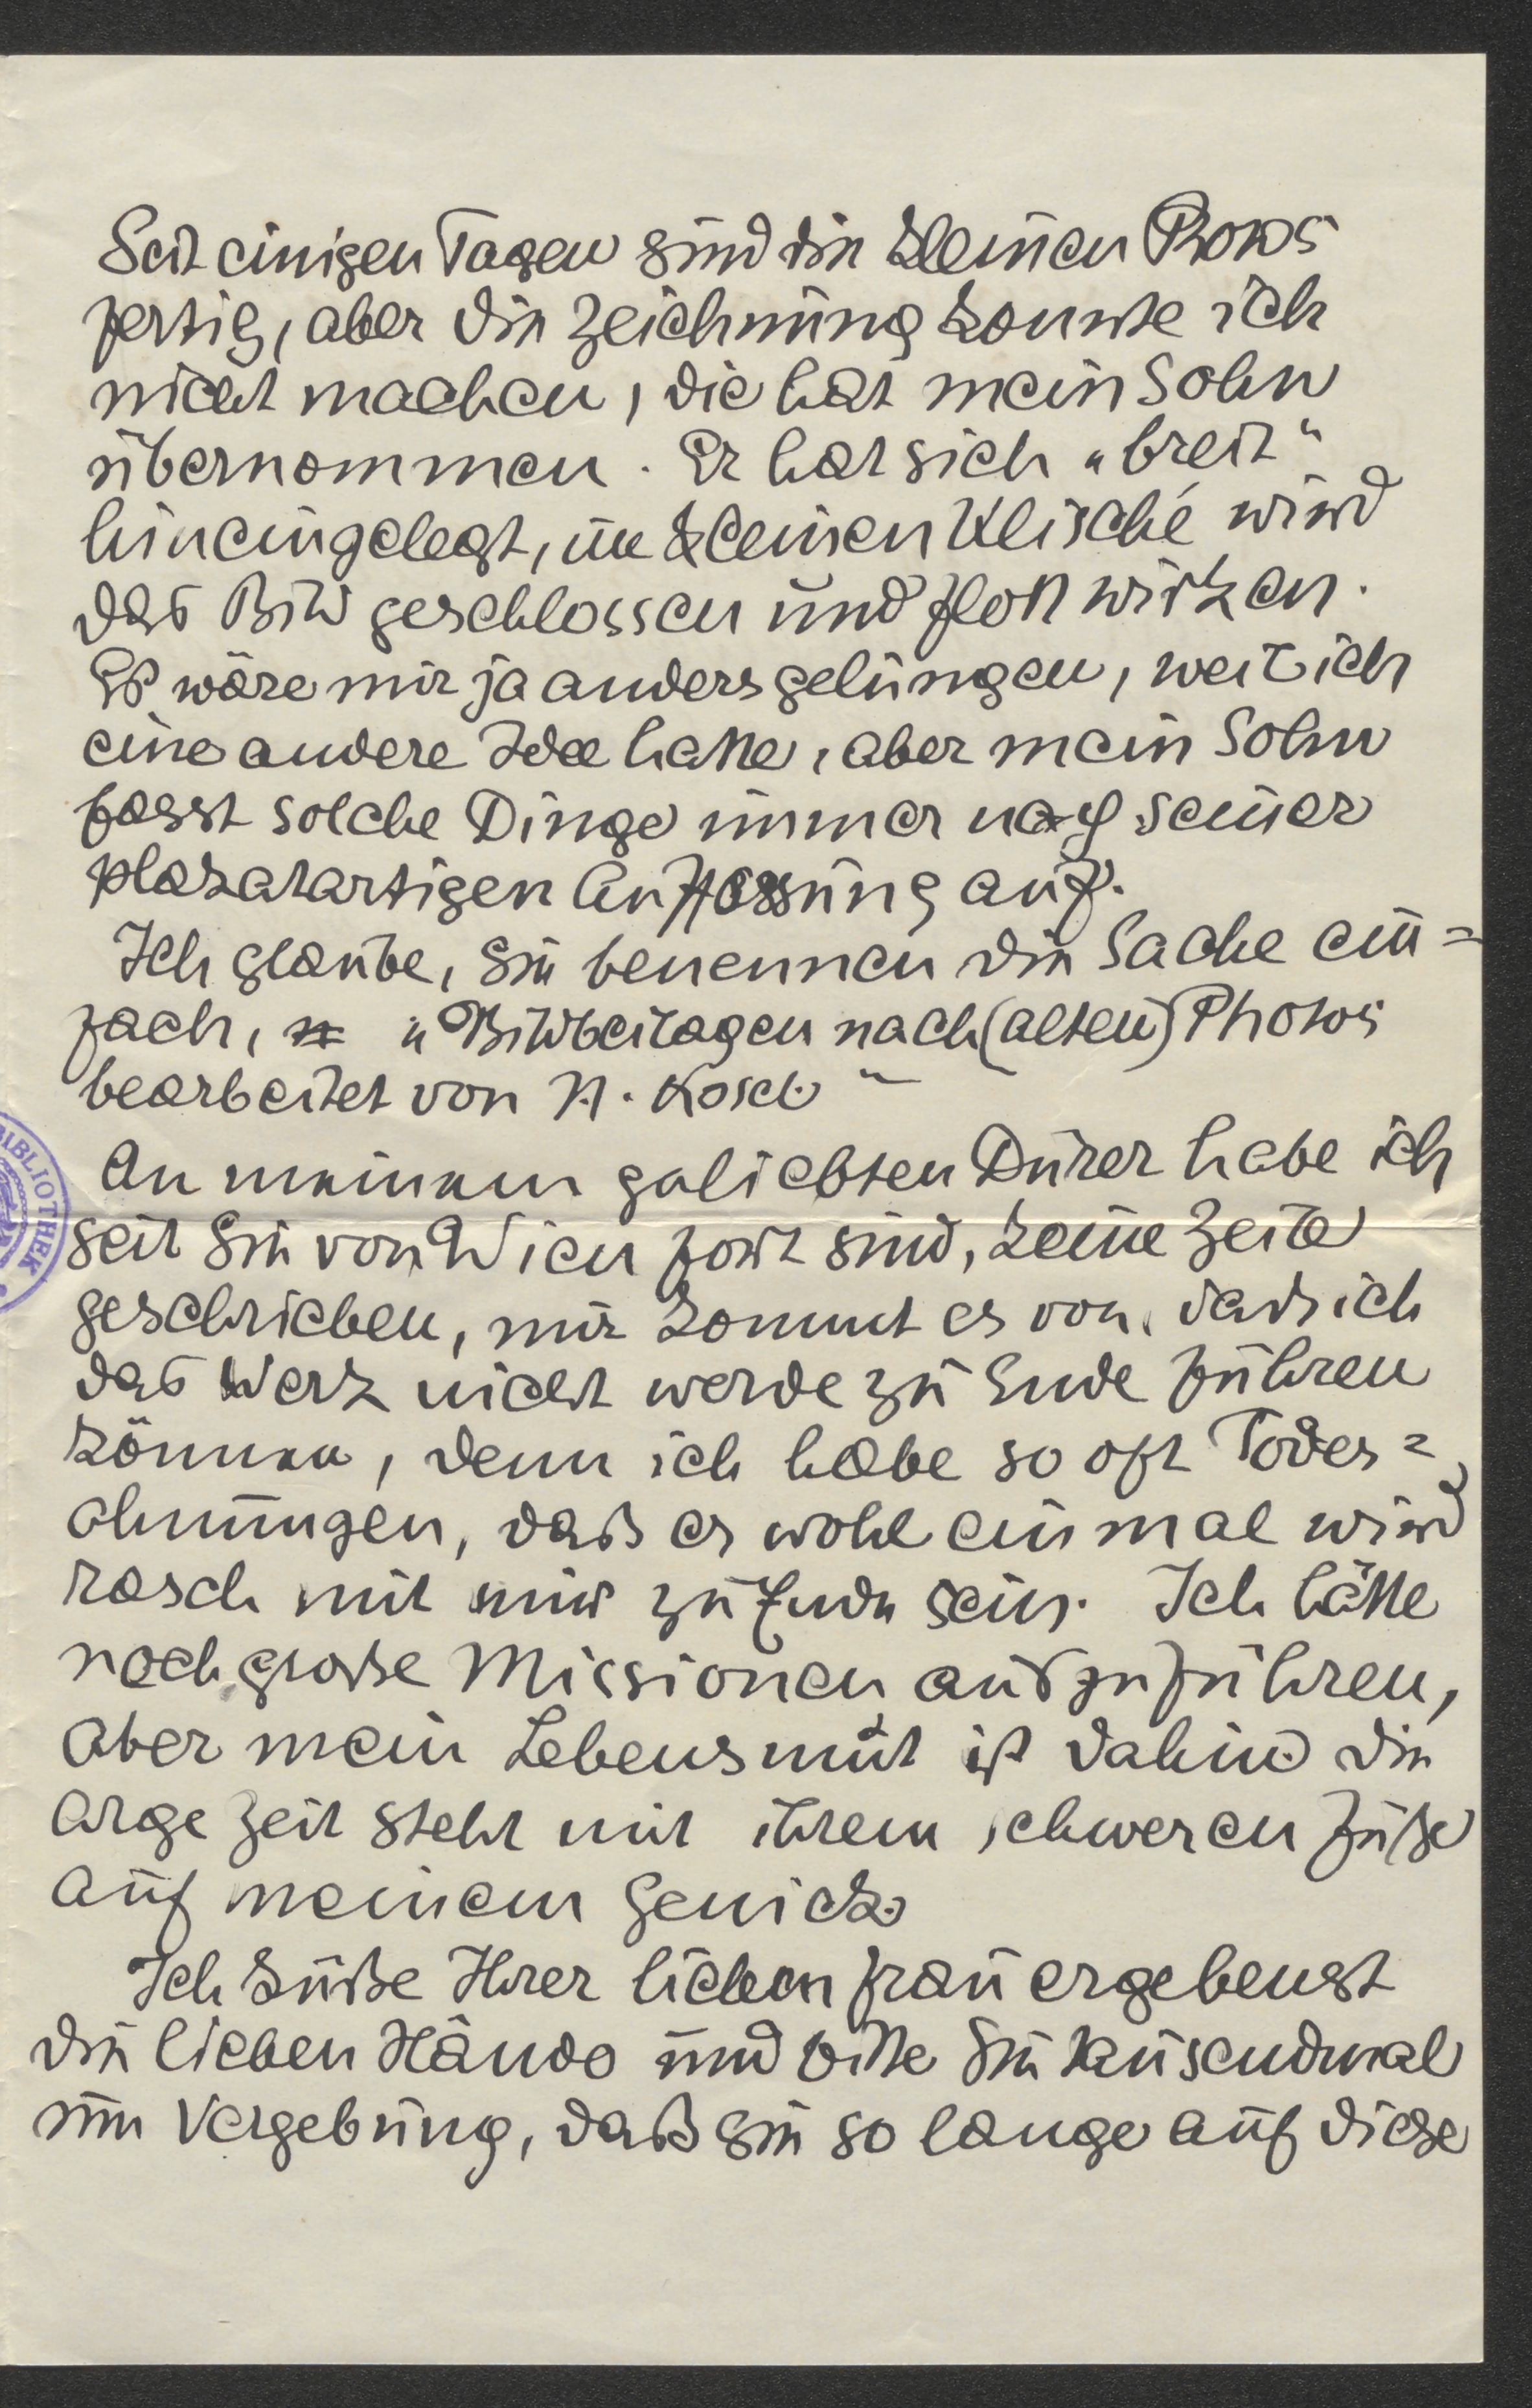 Seit einigen Tagen sind die kleinen Photos
fertig, aber die Zeichnung konnte ich
nicht machen, die hat mein Sohn
übernommen. Er hat sich „breit“
hineingelegt, im kleinen Klisché wird
das Bild geschlossen und flott wirken.
Es wäre mir ja anders gelungen, weil ich
eine andere Idee hatte, aber mein Sohn
fasst solche Dinge immer nach seiner
plakatartigen Auffassung auf.
Ich glaube, Sie benennen die Sache ein=
fach, „Bildbeilagen nach (alten) Photos
bearbeitet von H. Kosel“
An meinem geliebten Dürer habe ich
seit Sie von Wien fort sind, keine Zeile
geschrieben, mir kommt es vor, daß ich
das Werk nicht werde zu Ende führen
können, denn ich habe so oft Todes=
ahnungen, daß es wohl einmal wird
rasch mit mir zu Ende sein. Ich hätte
noch große Missionen auszuführen,
aber mein Lebensmut ist dahin die
arge Zeit steht mit ihrem schweren Fuße
auf meinem Genick.
Ich küße Ihrer lieben Frau ergebenst
die lieben Hände und bitte Sie tausendmal
um Vergebung, daß Sie so lange auf diese
BIBLIOTHEK